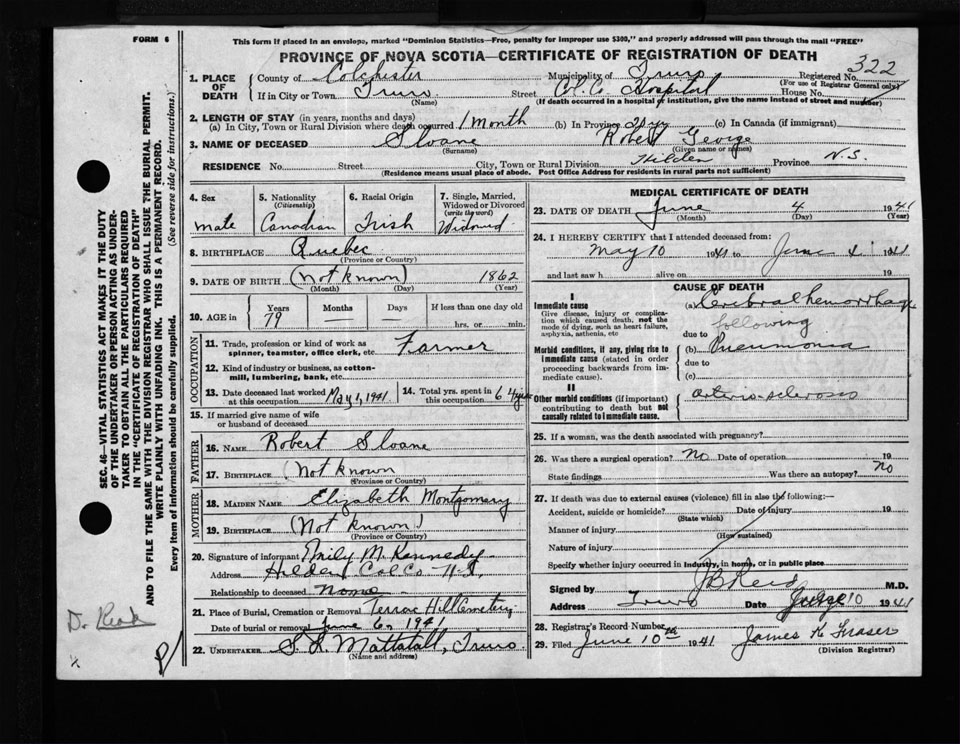 FORM 6
This form if placed in an envelope, marked "Dominion Statistics—Free, penalty for improper use $300," and properly addressed will pass through the mail "FREE"
PROVINCE OF NOVA SCOTIA—CERTIFICATE OF REGISTRATION OF DEATH
322
1. PLACE OF DEATH County of Colchester Municipality of Truro Registered No. (For use of Registrar General only)
If in City or Town Truro (Name) Street Col. Co. Hospital House No.
(If death occurred in a hospital or institution, give the name instead of street and number)
2. LENGTH OF STAY (in years, months and days)
(a) In City, Town or Rural Division where death occurred 1 Month (b) In Province (c) In Canada (if immigrant)
3. NAME OF DECEASED Sloane (Surname) Robert George (Given name or names)
RESIDENCE No. Street City, Town or Rural Division Hilden Province N.S.
(Residence means usual place of abode. Post Office Address for residents in rural parts not sufficient)
4. Sex Male
5. Nationality (Citizenship) Canadian
6. Racial Origin Irish
7. Single, Married, Widowed or Divorced (write the word) Widowed
8. BIRTHPLACE Quebec (Province or Country)
9. DATE OF BIRTH (Not known) 1862 (Month) (Day) (Year)
10. AGE in Years 79 Months — Days If less than one day old hrs. or min.
OCCUPATION
11. Trade, profession or kind of work as spinner, teamster, office clerk, etc. Farmer
12. Kind of industry or business, as cotton-mill, lumbering, bank, etc.
13. Date deceased last worked at this occupation May 1, 1941
14. Total yrs. spent in this occupation 64 years
15. If married give name of wife or husband of deceased
FATHER
16. NAME Robert Sloane
17. BIRTHPLACE (Not known (Province or Country)
MOTHER
18. MAIDEN NAME Elizabeth Montgomery
19. BIRTHPLACE (Not known) (Province or Country)
20. Signature of informant Emily M. Kennedy
Address Hilden Col Co N.S.
Relationship to deceased None
21. Place of Burial, Cremation or Removal Terrace Hill Cemetery
Date of burial or removal June 6, 1941
22. UNDERTAKER S. L. Mattatall, Truro
(Name and address)
MEDICAL CERTIFICATE OF DEATH
23. DATE OF DEATH June 4 1941
(Month) (Day) (Year)
24. I HEREBY CERTIFY that I attended deceased from:
May 10 1941 to June 4 1941
and last saw h alive on 19
CAUSE OF DEATH
I
Immediate cause
Give disease, injury or complication which caused death, not the mode of dying, such as heart failure, asphyxia, asthenia, etc
(a) Cerebral hemorrhage
following
due to
Morbid conditions, if any, giving rise to immediate cause (stated in order proceeding backwards from immediate cause).
(b) Pneumonia
due to
(c)
II
Other morbid conditions (if important) contributing to death but not causally related to immediate cause.
arterio-sclerosis
25. If a woman, was the death associated with pregnancy?
26. Was there surgical operation? No Date of operation 19
State findings Was there an autopsy? No
27. If death was due to external causes (violence) fill in also the following:—
Accident, suicide or homicide? (State which) Date of injury 19
Manner of injury (How sustained)
Nature of injury
Specify whether injury occurred in industry, in home, or in public place
Signed by J B Reid M.D.
Address Truro Date June 10 1941
28. Registrar's Record Number
29. Filed June 10th 1941 James K Fraser
(Division Registrar)
SEC. 46—VITAL STATISTICS ACT MAKES IT THE DUTY
OF THE UNDERTAKER OR PERSON ACTING AS UNDER-
TAKER TO OBTAIN ALL THE PARTICULARS REQUIRED
IN THE "CERTIFICATE OF REGISTRATION OF DEATH"
AND TO FILE THE SAME WITH THE DIVISION REGISTRAR WHO SHALL ISSUE THE BURIAL PERMIT.
WRITE PLAINLY WITH UNFADING INK. THIS IS A PERMANENT RECORD.
Every item of information should be carefully supplied. (See reverse side for instructions.)